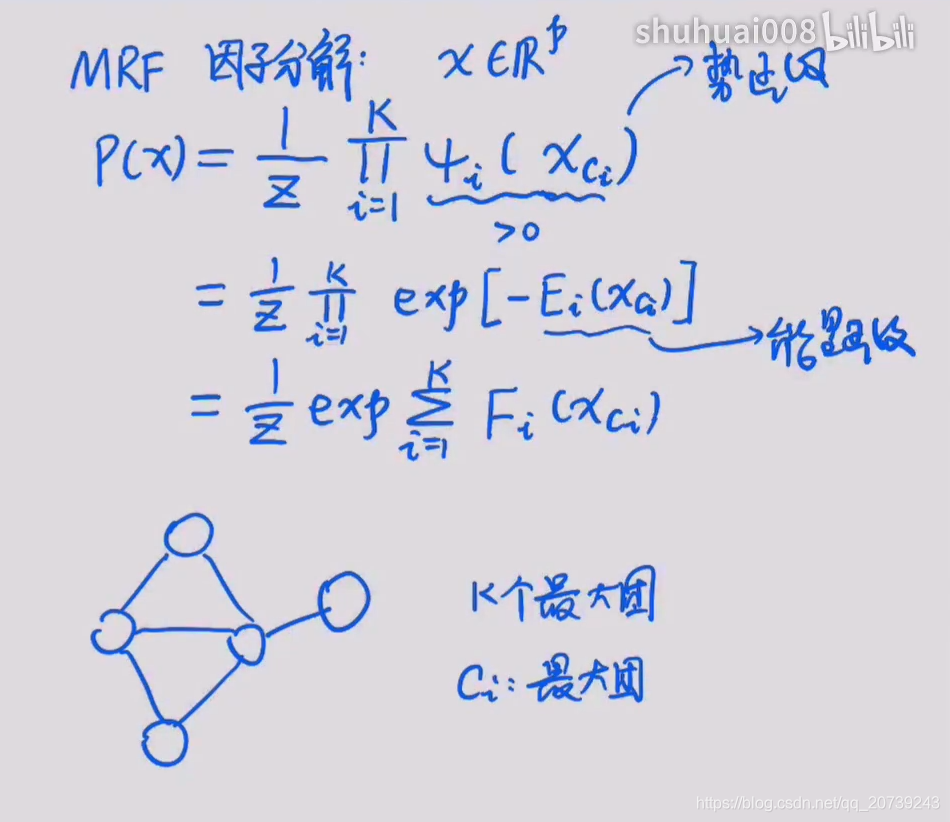 shuhuai008 bilibili
MRF 因子分解: x∈ℝᵖ
势函数
P(x) = 1/Z ∏_{i=1}^{K} ψ_i(x_{C_i})
>0
= 1/Z ∏_{i=1}^{K} exp[-E_i(x_{C_i})]
能量函数
= 1/Z exp ∑_{i=1}^{K} F_i(x_{C_i})
K个最大团
C_i: 最大团
https://blog.csdn.net/qq_20739243